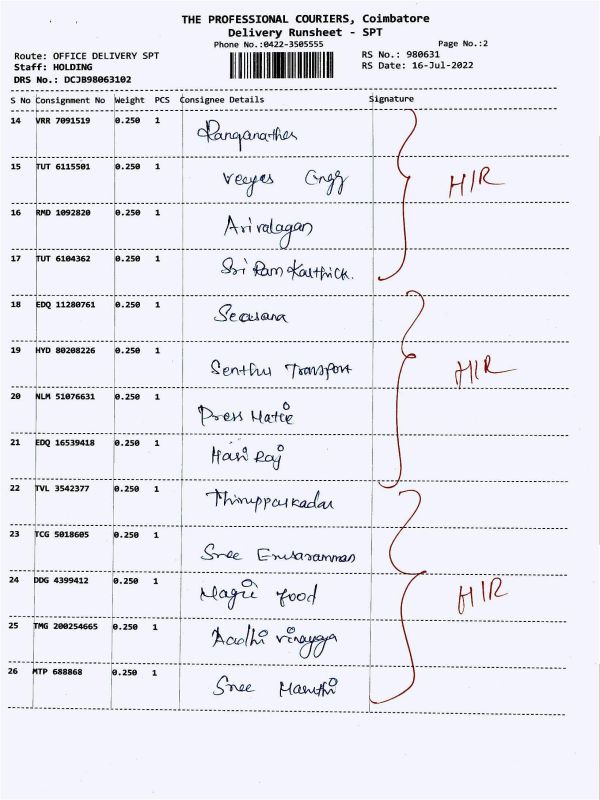 THE PROFESSIONAL COURIERS, Coimbatore
Delivery Runsheet - SPT
Phone No.:0422-3505555 Page No.:2
Route: OFFICE DELIVERY SPT RS No.: 980631
Staff: HOLDING RS Date: 16-Jul-2022
DRS No.: DCJB98063102
S No Consignment No Weight PCS Consignee Details Signature
14 VRR 7091519 0.250 1 Ranganathan
15 TUT 6115501 0.250 1 Veeyes Engg H/R
16 RMD 1092820 0.250 1 Arivalagan
17 TUT 6104362 0.250 1 Sri Ram Karthick.
18 EDQ 11280761 0.250 1
19 HYD 80208226 0.250 1 Transport H/R
20 NLM 51076631 0.250 1 Press Matic
21 EDQ 16539418 0.250 1 Hari Raj
22 TVL 3542377 0.250 1 Thiruppaskadar
23 TCG 5018605 0.250 1 Sree
24 DDG 4399412 0.250 1 Magii food H/R
25 TMG 200254665 0.250 1 Aadhi Vinayaga
26 MTP 688868 0.250 1 Sree Maruthi